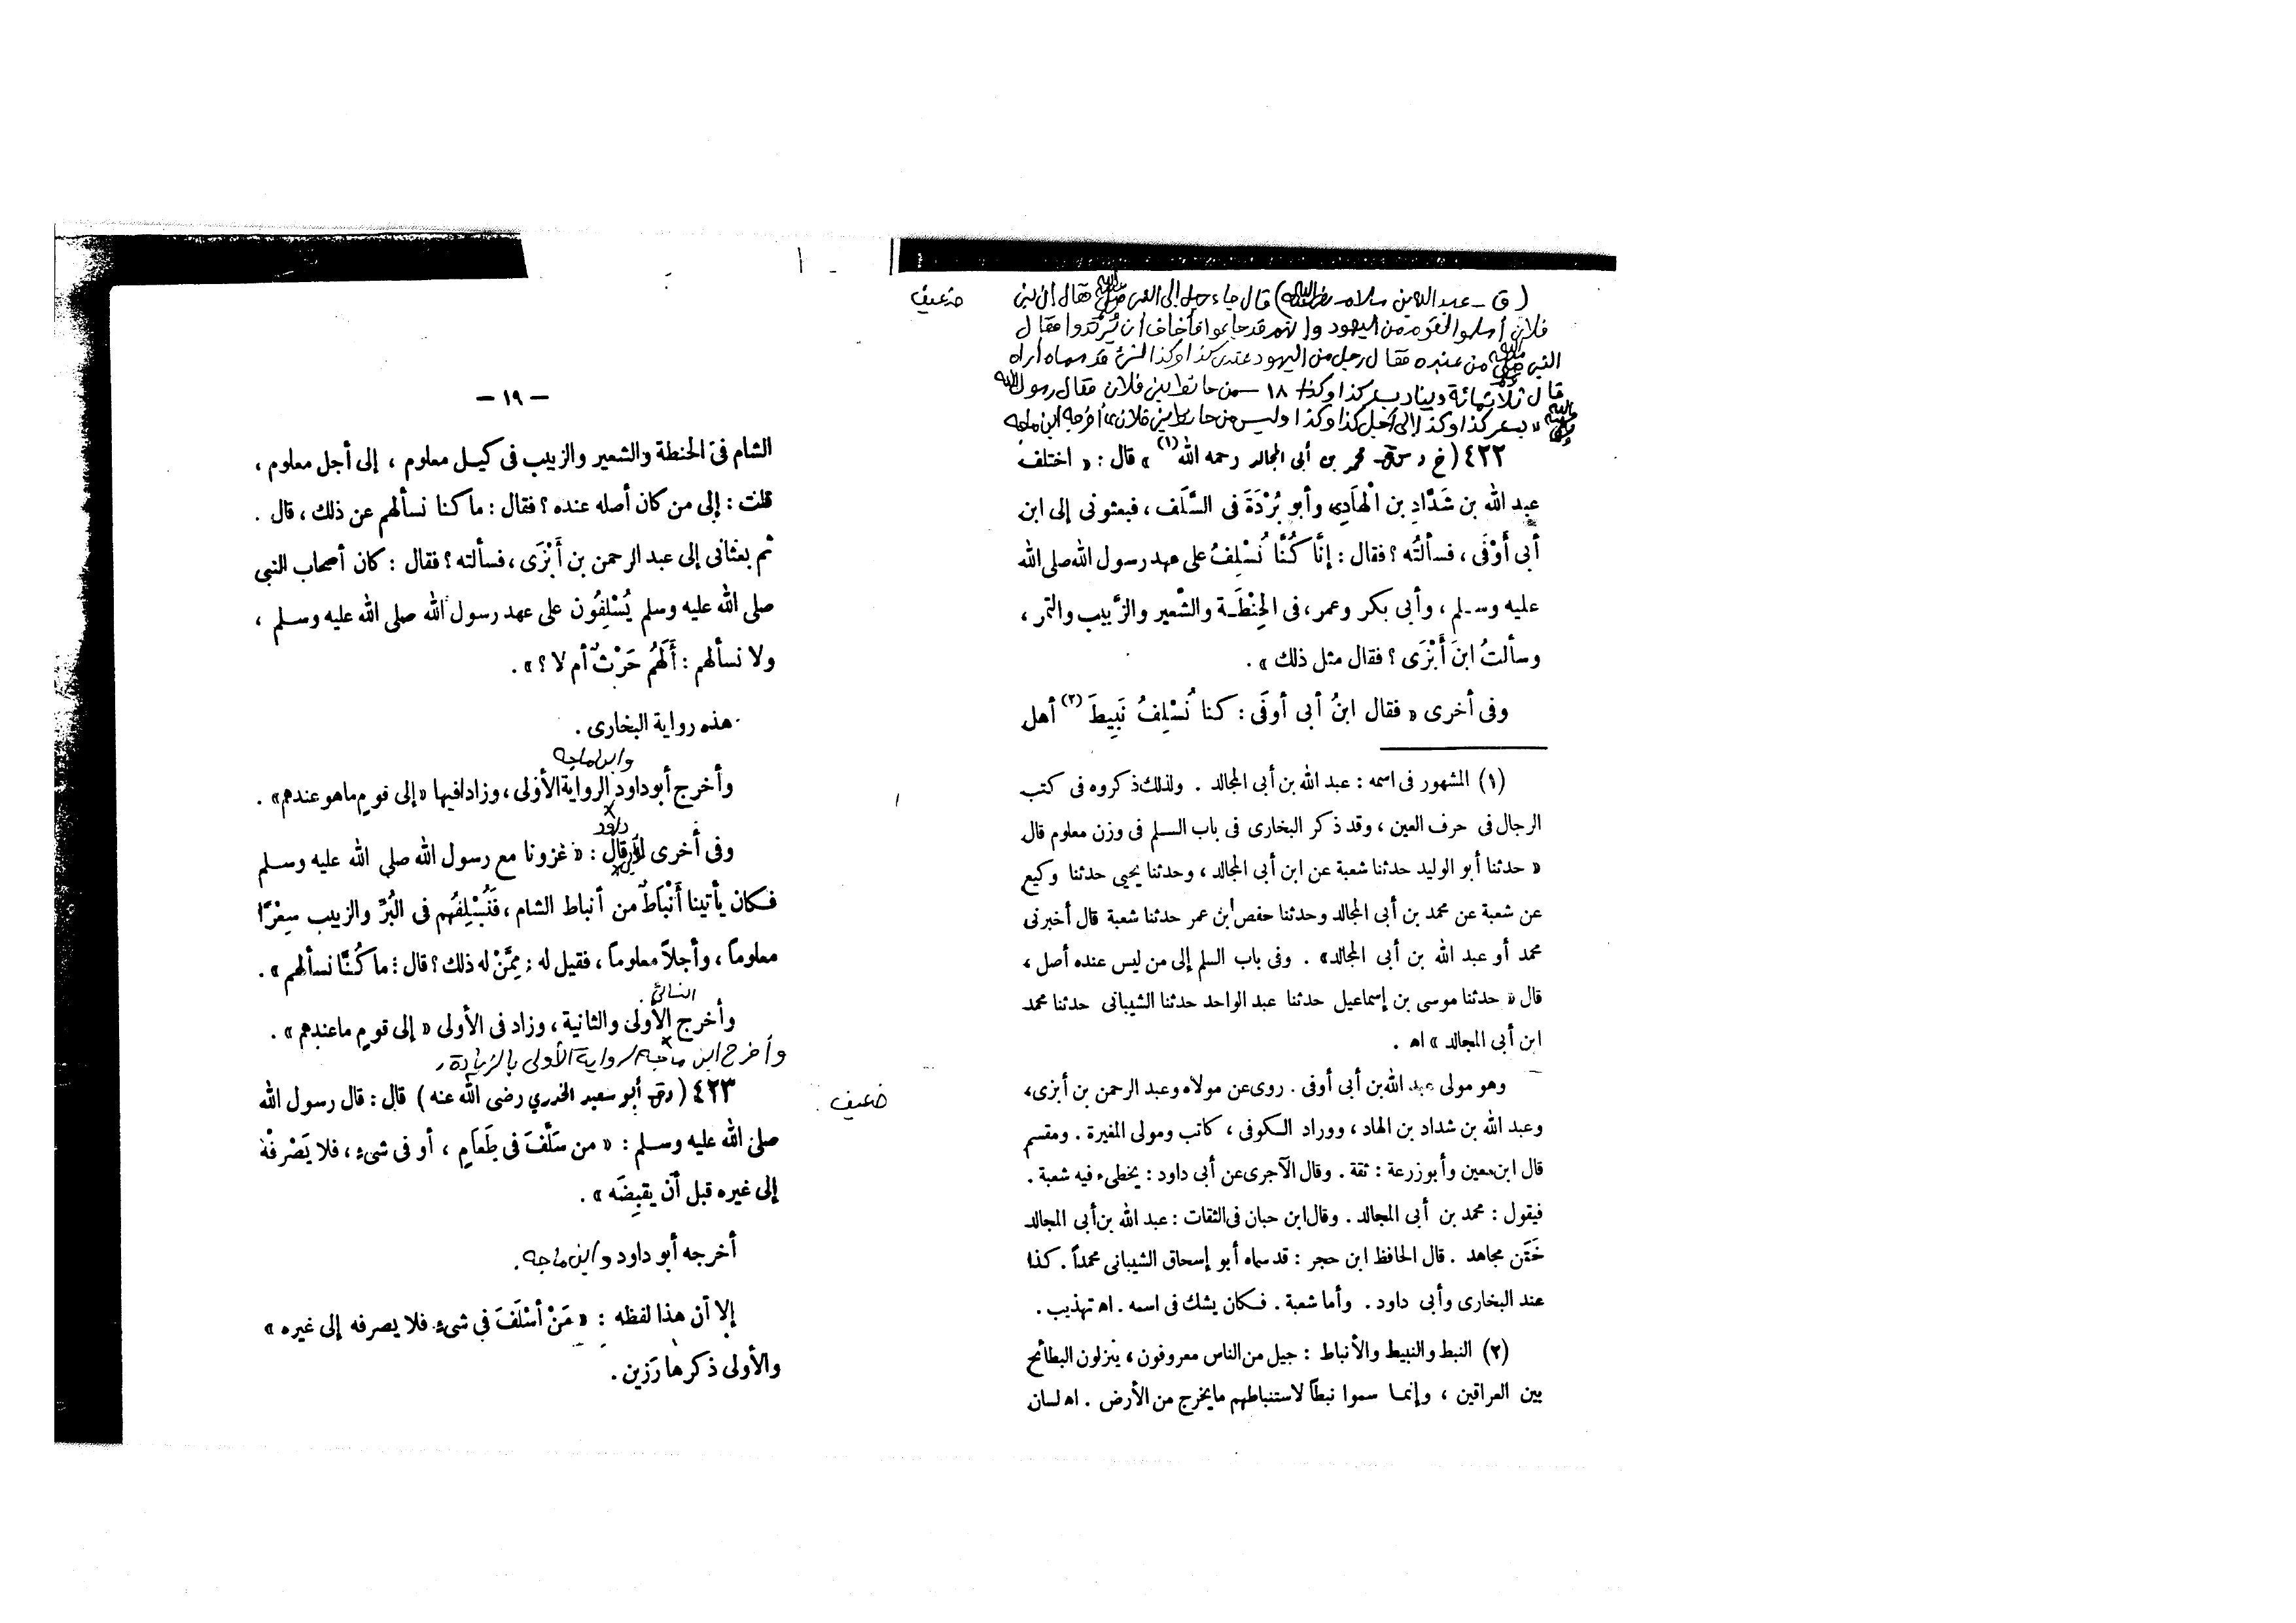 ضعيف
( ق - عبد الله بن سلام رضي الله عنه ) قال جاء رجل إلى النبي صلى الله عليه وسلم فقال إن بني
فلان أسلموا لقوم من اليهود وإنهم قد جاعوا فأخاف أن يرتدوا فقال
النبي صلى الله عليه وسلم من عنده فقال رجل من اليهود عندي كذا وكذا لشيء قد سماه أراه
قال ثلاثمائة دينار بسعر كذا وكذا ١٨ — من حائط بني فلان فقال رسول الله
صلى الله عليه وسلم « بسعر كذا وكذا إلى أجل كذا وكذا وليس من حائط بني فلان» أخرجه ابن ماجه
٤٢٢ ( خ د س ق محمد بن أبى المجالد رحمه الله (١) » قال : « اختلف
عبد الله بن شَدَّادِ بن الْهَادِى وأبو بُرْدَةَ فى السَّلَف ، فبعثونى إلى ابن
أبى أَوْفَى ، فسألتُه ؟ فقال : إنَّا كُنَّا نُسْلِفُ على عهد رسول الله صلى الله
عليه وسلم ، وأبى بكر وعمر ، فى الحِنْطَة والشَّعير والزَّبيب والتمر ،
وسألتُ ابنَ أَبْزَى ؟ فقال مثل ذلك » .
وفى أخرى « فقال ابنُ أبى أوفَى : كنا نُسْلِفُ نَبِيطَ (٢) أهل
(١) المشهور فى اسمه : عبد الله بن أبى المجالد . ولذلك ذكروه فى كتب
الرجال فى حرف العين ، وقد ذكر البخارى فى باب السلم فى وزن معلوم قال
« حدثنا أبو الوليد حدثنا شعبة عن ابن أبى المجالد ، وحدثنا يحيى حدثنا وكيع
عن شعبة عن محمد بن أبى المجالد وحدثنا حفص ابن عمر حدثنا شعبة قال أخبرنى
محمد أو عبد الله بن أبى المجالد» . وفى باب السلم إلى من ليس عنده أصل ،
قال « حدثنا موسى بن إسماعيل حدثنا عبد الواحد حدثنا الشيبانى حدثنا محمد
ابن أبى المجالد » اه .
وهو مولى عبد الله بن أبى أوفى . روى عن مولاه وعبد الرحمن بن أبزى ،
وعبد الله بن شداد بن الهاد ، ووراد الكوفى ، كاتب ومولى المغيرة . ومقسم
قال ابن معين وأبو زرعة : ثقة . وقال الآجرى عن أبى داود : يخطىء فيه شعبة .
فيقول : محمد بن أبى المجالد . وقال ابن حبان فى الثقات : عبد الله بن أبى المجالد
خَتَن مجاهد . قال الحافظ ابن حجر : قد سماه أبو إسحاق الشيبانى محمداً . كذا
عند البخارى وأبى داود . وأما شعبة . فكان يشك فى اسمه . اه تهذيب .
(٢) النبط والنبيط والأنباط : جيل من الناس معروفون ، ينزلون البطائح
بين العراقين ، وإنما سموا نبطاً لاستنباطهم ما يخرج من الأرض . اه لسان
— ١٩ —
الشام فى الحنطة والشعير والزبيب فى كيل معلوم ، إلى أجل معلوم ،
قلت : إلى من كان أصله عنده ؟ فقال : ما كنا نسألهم عن ذلك ، قال .
ثم بعثانى إلى عبد الرحمن بن أَبْزَى ، فسألته ؟ فقال : كان أصحاب النبى
صلى الله عليه وسلم يُسْلِفُون على عهد رسول الله صلى الله عليه وسلم ،
ولا نسألهم : أَلَهُمْ حَرْثٌ أم لا ؟ » .
هذه رواية البخارى .
وابن ماجه
وأخرج أبو داود الرواية الأولى ، وزادا فيها « إلى قوم ما هو عندهم» .
داود
وفى أخرى لأبي قال : « غزونا مع رسول الله صلى الله عليه وسلم
فكان يأتينا أَنْبَاطٌ من أنباط الشام ، فَنُسْلِفُهم فى البُرِّ والزبيب سِعْرًا
معلوماً ، وأجلاً معلوماً ، فقيل له : مِمَّنْ له ذلك ؟ قال : ما كُنَّا نسألهم » .
النسائي
وأخرج الأولى والثانية ، وزاد فى الأولى « إلى قوم ما عندهم » .
وأخرج ابن ماجه الرواية الأولى بالزيادة .
ضعيف
٤٢٣ ( د ق أبو سعيد الخدري رضى الله عنه ) قال : قال رسول الله
صلى الله عليه وسلم : « من سَلَّفَ فى طَعَامٍ ، أو فى شىءٍ ، فلا يَصْرِفْهُ
إلى غيره قبل أن يقبِضَه » .
أخرجه أبو داود وابن ماجه .
إلا أن هذا لفظه : « مَنْ أَسْلَفَ فِي شىءٍ فلا يصرفه إلى غيره »
والأولى ذكرها رَزين .